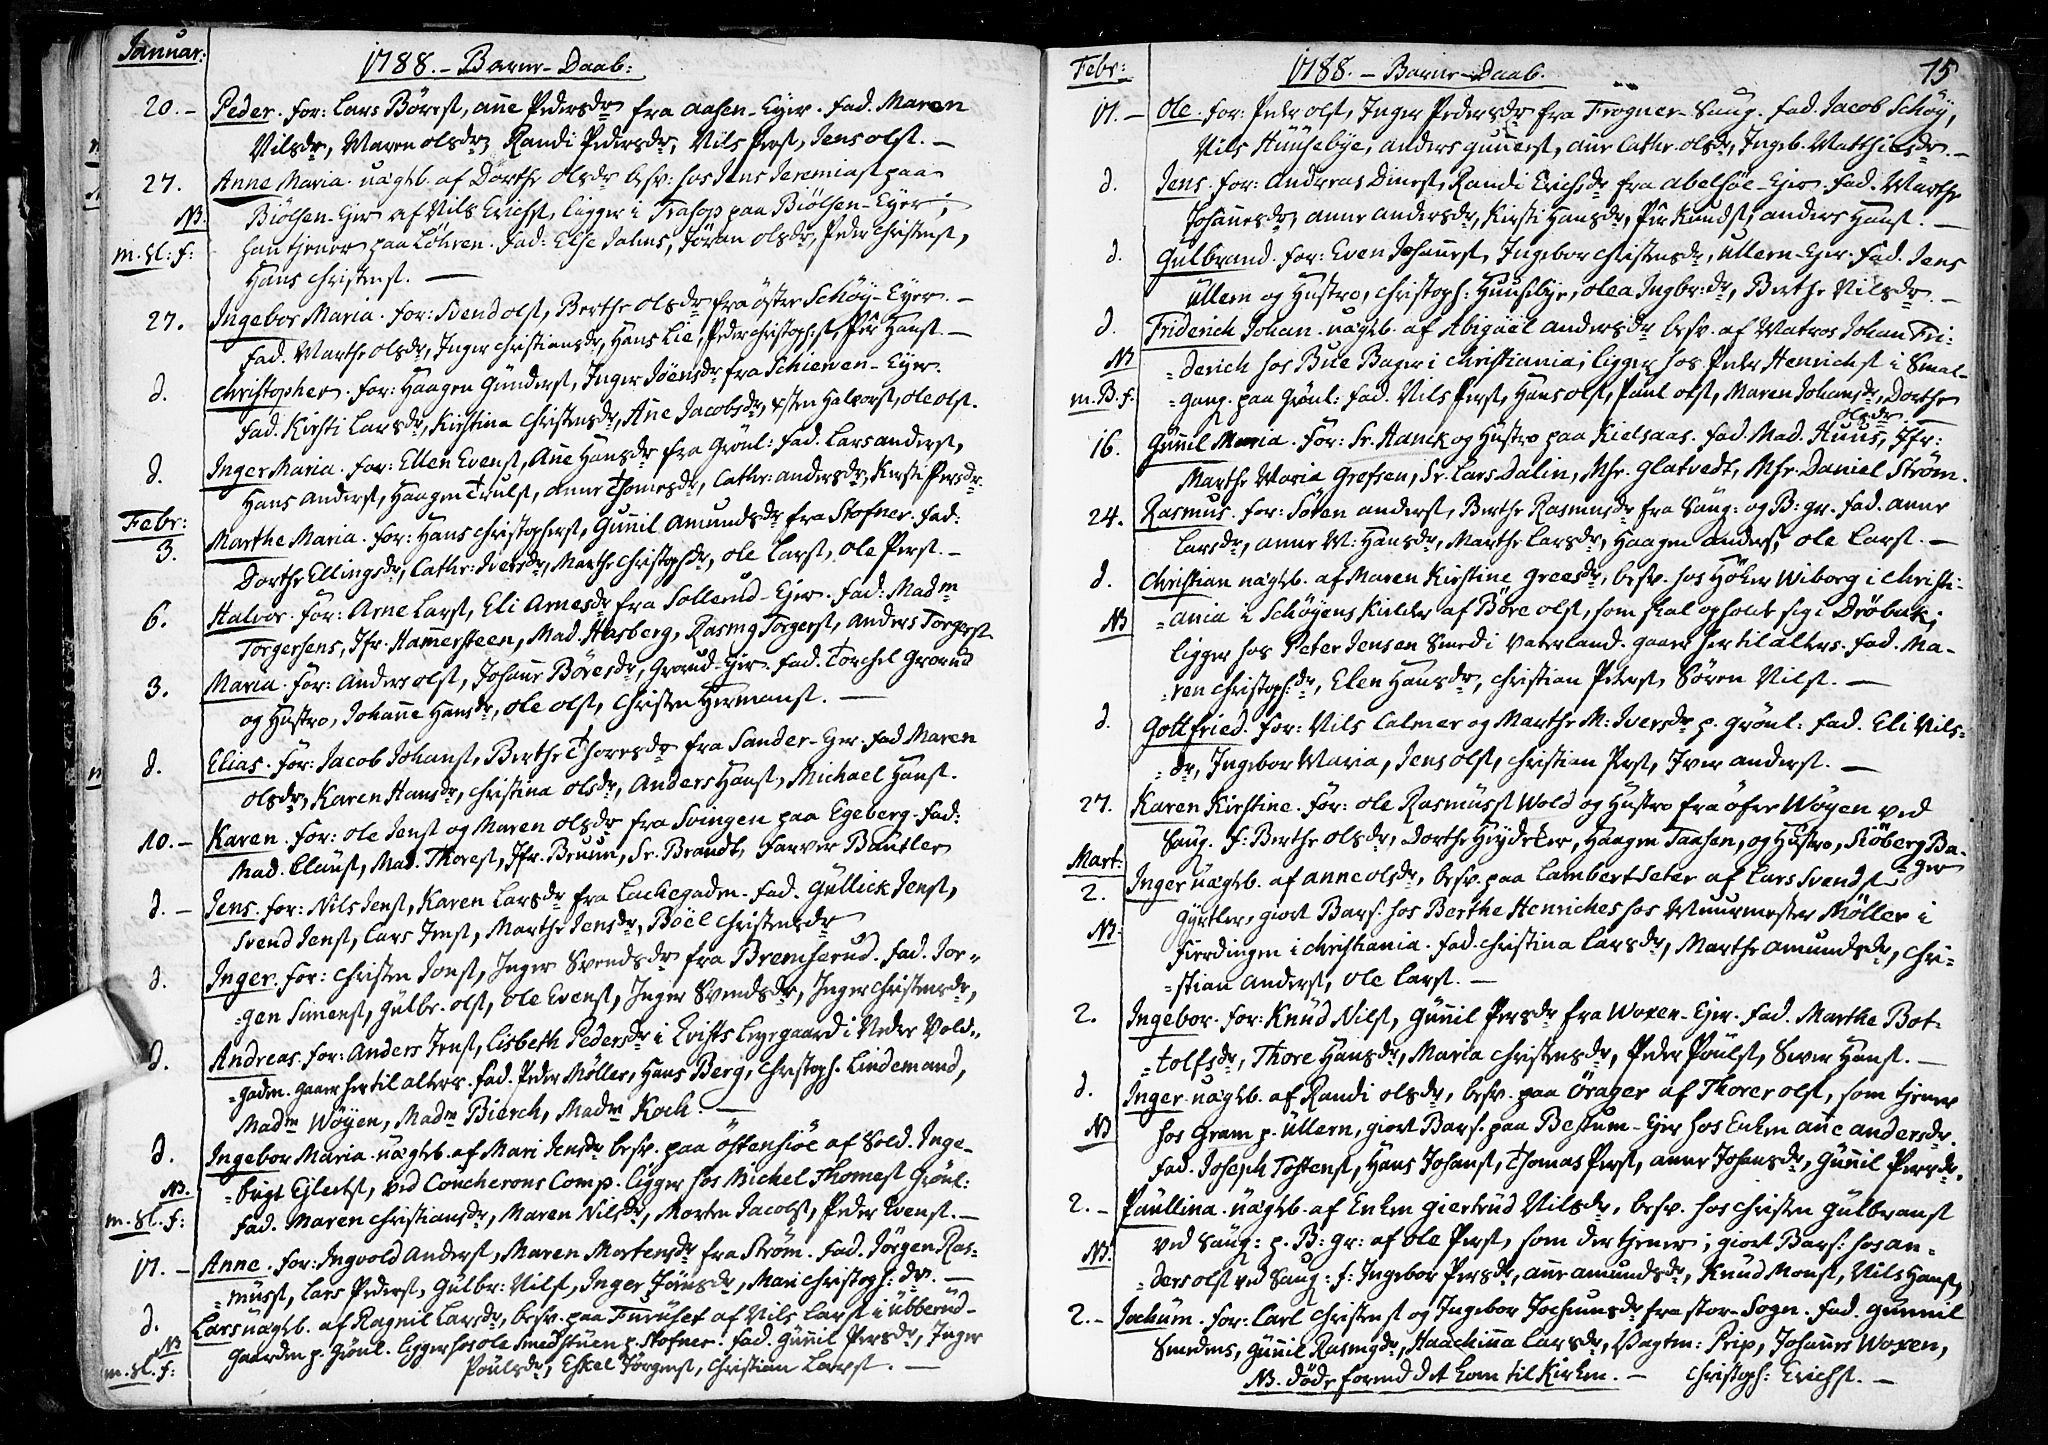 Januar:
1788. - Barne-Daab:
20. - Peder. For: Lars Börest, Anne Pedersdr fra Aasen-Eyer. Fad. Maren
Nilsdr, Maren Olsdr, Randi Pedersdr, Nils Perst, Jens Olst. -
27. Anne Maria. uægtb. af Dorthe Olsdr besv: hos Jens Jeremiast paa
NB Biölsen-Ejer af Nils Erichst, ligger i Trasop paa Biölsen-Eyer;
m. sl: f: han tjener paa Löhren. Fad: Else Jalms, Jöran Olsdr, Peder Christenst,
Hans Christenst. -
27. Ingebor Maria. For: Svend Olst, Berthe Olsdr fra östre Schöy-Eyer. -
Fad. Marthe Olsdr, Inger Christiansdr, Hans Lie, Peder Christophst, Per Hanst. -
d. Christopher. For: Haagen Gunderst, Inger Joensdr fra Schieeven-Eyer.
Fad. Kirsti Larsdr, Kirstina Christensdr, Ane Jacobsdr, Osten Halvorst, Ole Olst.
d. Inger Maria. For: Ellen Evenst, Ane Hansdr fra Grönl: Fad. Lars Anderst,
Hans Anderst, Haagen Trulst, Anne Thomesdr, Cathr. Andersdr, Kirsti Persdr.
Febr:
3. Marthe Maria. For: Hans Christopherst, Gunil Amundsdr fra Stofner. Fad:
Dorthe Ellingsdr, Cathr: Iversdr, Marthe Christophdr, Ole Larst, Ole Perst. -
6. Halvor. For: Arne Larst, Eli Arnesdr fra Sollerud-Ejer. Fad: Madm
Torgersens, Jfr. Hamersteen, Mad. Hasberg, Rasmg Torgerst, Anders Torgerst
3. Maria. For: Anders Olst, Johane Böresdr, Grorud-Ejer. Fad. Torchel Grorud
og Hustro, Johanne Hansdr, Ole Olst, Christen Hermanst. -
d. Elias. For: Jacob Johanst, Berthe Thoresdr fra Sander-Ejer. Fad Maren
Olsdr, Karen Hansdr, Christina Olsdr, Anders Hanst, Michael Hanst.
10. - Karen. For: Ole Jenst og Maren Olsdr fra Svingen paa Egeberg. Fad:
Mad. Claust, Mad. Thorest, Jfr. Bruun, Sr. Brandt, Farver Bautler
d. - Jens. For: Nils Jenst, Karen Larsdr fra Lachegaden. Fad. Gullick Jenst,
Svend Jenst, Lars Jenst, Marthe Jensdr, Boël Christensdr
d. Inger. For: Christen Jonst, Inger Svendsdr fra Bremserud. Fad. Jör=
=gen Simenst, Gulbr. Olst, Ole Evenst, Inger Svendsdr, Inger Christensdr,
d. Andreas. For: Anders Jenst, Lisbeth Pedersdr i Qvists Leyegaard i Neder Vold=
=gaden. gaaer her til alters. Fad. Peder Möller, Hans Berg, Christoph. Lindemand,
Madm Wöyen, Madm Bierch, Madm Koch. -
d. Ingebor Maria. uægtb. af Mari Jensdr besv. paa Östensiöe af Sold. Inge=
NB. =brigt Ejlertst, ved Coucherons Comp. ligger hos Michel Thomest Grönl:
m. sl. f: Fad. Maren Christiansdr, Maren Nilsdr, Morten Jacobst, Peder Evenst. -
17. - Anne. For: Ingvold Anderst, Maren Mortensdr fra Ström. Fad. Jörgen Ras=
=musst, Lars Pederst, Gulbr: Nilst, Inger Jörensdr, Mari Christoph: dr. -
d. Lars uægtb. af Ragnil Larsdr, besv. paa Furuset af Nils Larst i Ubberud-
NB Gaarden p. Grönl. ligger hos Ole Smedstuen p. Stofner. Fad. Gunil Persdr, Inger
m. sl. f: Poulsdr, Eskel Jörgenst, Christian Larst. -
Febr:
1788. - Barne-Daab.
75
17. - Ole. For: Peder Olst, Inger Pedersdr fra Frogner-Saug. Fad. Jacob Schöy,
Nils Huusebye, Anders Gunerst, Ane Cathr. Olsdr, Ingeb. Matthiesdr. -
d. Jens. For: Andreas Dinest, Randi Erichsdr fra Abelsöe-Ejer. Fad. Marthe
Johanesdr, Anne Andersdr, Kirsti Hansdr, Per Knudst, Anders Hanst. -
d. Gulbrand. For: Even Johanest, Ingebor Christensdr, Ullern-Ejer. Fad. Jens
Ullern og Hustro, Christoph: Huusebye, Olea Ingbr: dr, Berthe Nilsdr. -
d. Friderich Johan. uægtb. af Abigael Andersdr besv. af Matros Johan Fri=
NB =derich hos Bue Bager i Christiania; ligger hos Peder Henrichst i Smal=
m. B. f. =gang. paa Grönl: Fad. Nils Perst, Hans Olst, Paul Olst, Maren Johansdr, Dorthe
Olsdr
16. Gunil Maria. For: Sr. Hanck og Hustro paa Kielsaas. Fad. Mad. Huus, Jfr:
Marthe Maria Grefsen, Sr. Lars Dalin, Mhr. Glatvedt, Mhr. Daniel Ström.
24. Rasmus. For: Sören Anderst, Berthe Rasmusdr fra Saug: og B: gr. Fad. Anne
Larsdr, Anne M: Hansdr, Marthe Larsdr, Haagen Anderst, Ole Larst. -
d. Christian uægtb. af Maren Kirstine Greesdr, besv. hos Höker Wiborg i Christi=
NB =ania i Schöyens Kielder af Böre Olst, som skal opholde sig i Dröbak;
ligger hos Peter Jensen Smed i Vaterland. gaaer her til alters. Fad. Ma=
=ren Christoph: dr, Elen Hansdr, Christian Pederst, Sören Nilst. -
d. Gottfried. For: Nils Calmer og Marthe M: Iversdr p. Grönl: Fad. Eli Nils=
=dr, Ingebor Maria, Jens Olst, Christian Perst, Iver Anderst. -
27. Karen Kirstine. For: Ole Rasmusst Wold og Hustro fra öfre Wöyen ved
Saug. F: Berthe Olsdr, Dorthe Heydeker, Haagen Taasen, og Hustro, Köberg Ba=
=ger
Mart:
2. Inger uægtb. af Anne Olsdr, besv. paa Lambertseter af Lars Svendst
NB. Gyrtler, giort Bars. hos Berthe Henriches hos Muurmester Möller i
Fierdingen i Christiania. Fad. Christina Larsdr, Marthe Amundsdr, Chri=
=stian Anderst, Ole Larst. -
2. Ingebor. For: Knud Nilst, Gunil Persdr fra Woxen-Ejer. Fad. Marthe Bot=
=tolfsdr, Thore Hansdr, Maria Christensdr, Peder Poulst, Siver Hanst. -
d. Inger. uægtb. af Randi Olsdr, besv. paa Örager af Thorer Olst, som tjener
NB hos Gram p. Ullern, giort Bars. paa Bestum-Ejer hos Enken Ane Andersdr.
Fad. Joseph Tostenst, Hans Johanst, Thomas Perst, Anne Johansdr, Gunil Persdr.
2. - Paullina. uægtb. af Enken Giertrud Nilsdr, besv. hos Christen Gulbranst
NB. ved Saug: p. B: gr: af Ole Perst, som der tjener; giort Bars: hos An=
=ders Olst ved Saug: f: Ingebor Persdr, Ane Amundsdr, Knud Monst, Nils Hanst,
2. - Jochum. For: Carl Christenst og Ingebor Jochumsdr fra Stor-Sogn. Fad. Gunnil
Smedens, Gunil Rasmgdr, Haachinna Larsdr, Vagtm: Prip, Johannes Woxen,
NB. döde forend det kom til Kirken. - Christoph: Erichst. -